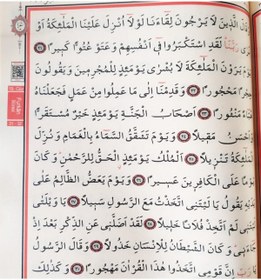 الَّذِينَ لَا يَرْجُونَ لِقَاءَنَا لَوْلَا أُنْزِلَ عَلَيْنَا الْمَلٰئِكَةُ اَوْ
لَقَدِ اسْتَكْبَرُوا فِي اَنْفُسِهِمْ وَعَتَوْ عُتُوًّا كَبِيرًا
يَرَوْنَ الْمَلٰئِكَةَ لَا بُشْرٰى يَوْمَئِذٍ لِلْمُجْرِمِينَ وَيَقُولُونَ
مَحْجُورًا وَقَدِمْنَا اِلٰى مَا عَمِلُوا مِنْ عَمَلٍ فَجَعَلْنَاهُ
اَصْحَابُ الْجَنَّةِ يَوْمَئِذٍ خَيْرٌ مُسْتَقَرًّا
مَقِيلًا وَيَوْمَ تَشَقَّقُ السَّمَاءُ بِالْغَمَامِ وَنُزِّلَ
تَنْزِيلًا اَلْمُلْكُ يَوْمَئِذٍ الْحَقُّ لِلرَّحْمٰنِ وَكَانَ
عَلَى الْكَافِرِينَ عَسِيرًا وَيَوْمَ يَعَضُّ الظَّالِمُ عَلٰى
يَقُولُ يَا لَيْتَنِي اتَّخَذْتُ مَعَ الرَّسُولِ سَبِيلًا يَا وَيْلَتٰى
لَمْ اَتَّخِذْ فُلَانًا خَلِيلًا لَقَدْ اَضَلَّنِي عَنِ الذِّكْرِ بَعْدَ اِذْ
وَكَانَ الشَّيْطَانُ لِلْاِنْسَانِ خَذُولًا وَقَالَ الرَّسُولُ
قَوْمِي اتَّخَذُوا هٰذَا الْقُرْاٰنَ مَهْجُورًا وَكَذٰلِكَ